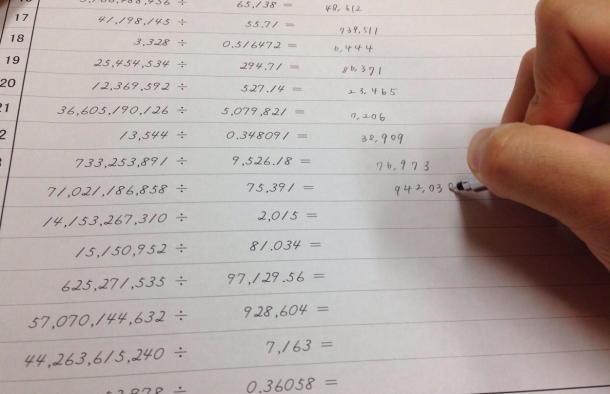 65,138 = 48,612
17 41,198,145 ÷ 55.71 = 739,511
18 3,328 ÷ 0.516472 = 6,444
19 25,454,534 ÷ 294.71 = 86,371
20 12,369,592 ÷ 527.14 = 23,465
21 36,605,190,126 ÷ 5,079,821 = 7,206
2 13,544 ÷ 0.348091 = 38,909
733,253,891 ÷ 9,526.18 = 76,973
71,021,186,858 ÷ 75,391 = 942,03
14,153,267,310 ÷ 2,015 =
15,150,952 ÷ 81.034 =
625,271,535 ÷ 97,129.56 =
57,070,144,632 ÷ 928,604 =
44,263,615,240 ÷ 7,163 =
÷ 0.36058 =